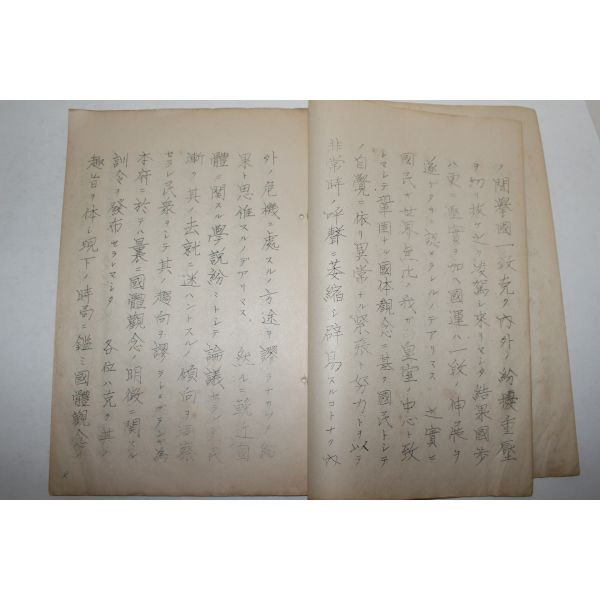 ノ間擧國一致克ク內外ノ紛擾重壓
ヲ切リ拔ケ之ヲ凌駕シ來リマシタ結果國步
ハ更ニ堅實ヲ加ヘ國運ハ一段ノ伸展ヲ
遂ゲタリト認メラレルノデアリマス 之實ニ
國民ガ世界無比ノ我ガ皇室ヲ中心ト致
シマシテ鞏固ナル國体觀念ニ基ク國民トシテ
ノ自覺ニ依リ異常ナル緊張ト努力トヲ以テ
非常時ノ呼聲ニ萎縮シ辟易スルコトナク內
外ノ危機ニ處スルノ方途ヲ謬ラナカツタ結
果ト思惟スルノデアリマス、 然ルニ輓近國
體ニ関スル學說紛々トシテ論議セラレ
漸ク其ノ去就ニ迷ハントスルノ傾向ヲ洞察
セラレ民衆ヲシテ其ノ趨向ヲ謬ラシメザラン為
本府ニ於テハ曩ニ國體觀念ノ明徵ニ関スル
訓令ヲ發布セラレマシタ 各位ハ克ク其ノ
趣旨ヲ体シ現下ノ時局ニ鑑ミ國體觀念